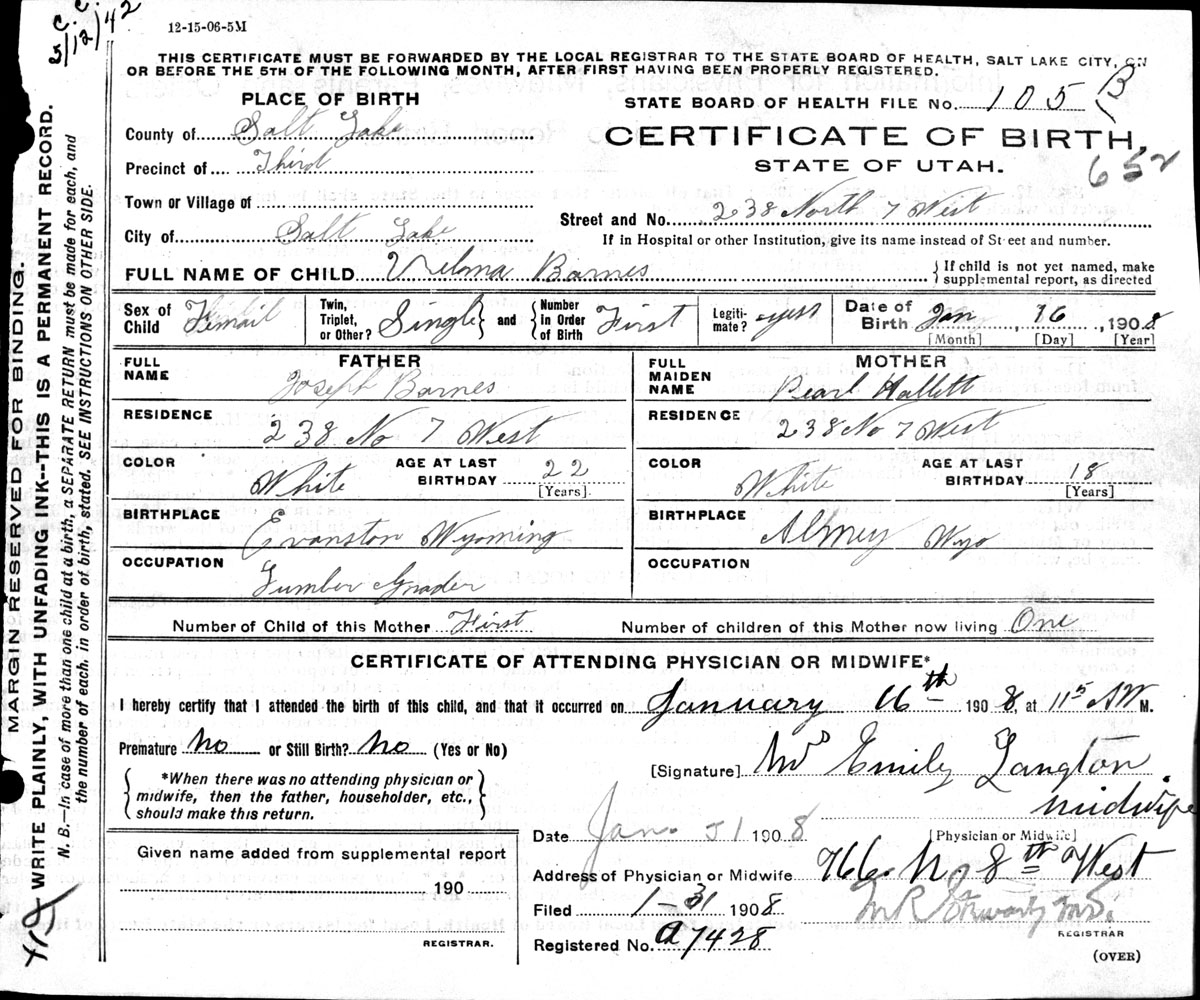 C. C.
5/12/42
12-15-06-5M
THIS CERTIFICATE MUST BE FORWARDED BY THE LOCAL REGISTRAR TO THE STATE BOARD OF HEALTH, SALT LAKE CITY, ON
OR BEFORE THE 5TH OF THE FOLLOWING MONTH, AFTER FIRST HAVING BEEN PROPERLY REGISTERED.
PLACE OF BIRTH
STATE BOARD OF HEALTH FILE No. 105 B
County of Salt Lake
CERTIFICATE OF BIRTH.
Precinct of Third
STATE OF UTAH.
652
Town or Village of
Street and No. 238 North 7 West
City of Salt Lake
If in Hospital or other Institution, give its name instead of Street and number.
FULL NAME OF CHILD Velma Barnes
{ If child is not yet named, make
supplemental report, as directed
Sex of Child Femail
Twin, Triplet, or Other? Single } and { Number In Order of Birth First
Legiti-mate? yes
Date of Birth Jan, 16, 1908
[Month] [Day] [Year]
FATHER
FULL NAME Joseph Barnes
RESIDENCE 238 No 7 West
COLOR White AGE AT LAST BIRTHDAY 22
[Years].
BIRTHPLACE Evanston Wyoming
OCCUPATION Lumber Grader
MOTHER
FULL MAIDEN NAME Pearl Hallett
RESIDENCE 238 No 7 West
COLOR White AGE AT LAST BIRTHDAY 18
[Years]
BIRTHPLACE Almey Wyo
OCCUPATION
Number of Child of this Mother First Number of children of this Mother now living One
CERTIFICATE OF ATTENDING PHYSICIAN OR MIDWIFE*
I hereby certify that I attended the birth of this child, and that it occurred on January 16th 1908, at 11 5 A M.
Premature No or Still Birth? No (Yes or No)
[Signature] Mrs Emily Langton.
midwife
{ *When there was no attending physician or
midwife, then the father, householder, etc.,
should make this return. }
Date Jan. 31 1908
[Physician or Midwife]
Given name added from supplemental report
190
REGISTRAR.
Address of Physician or Midwife 766. N. 8th West
Filed 1-31 1908
Registered No. a1428
REGISTRAR
(OVER)
MARGIN RESERVED FOR BINDING.
WRITE PLAINLY, WITH UNFADING INK--THIS IS A PERMANENT RECORD.
N. B.—In case of more than one child at a birth, a SEPARATE RETURN must be made for each, and
the number of each, in order of birth, stated. SEE INSTRUCTIONS ON OTHER SIDE.